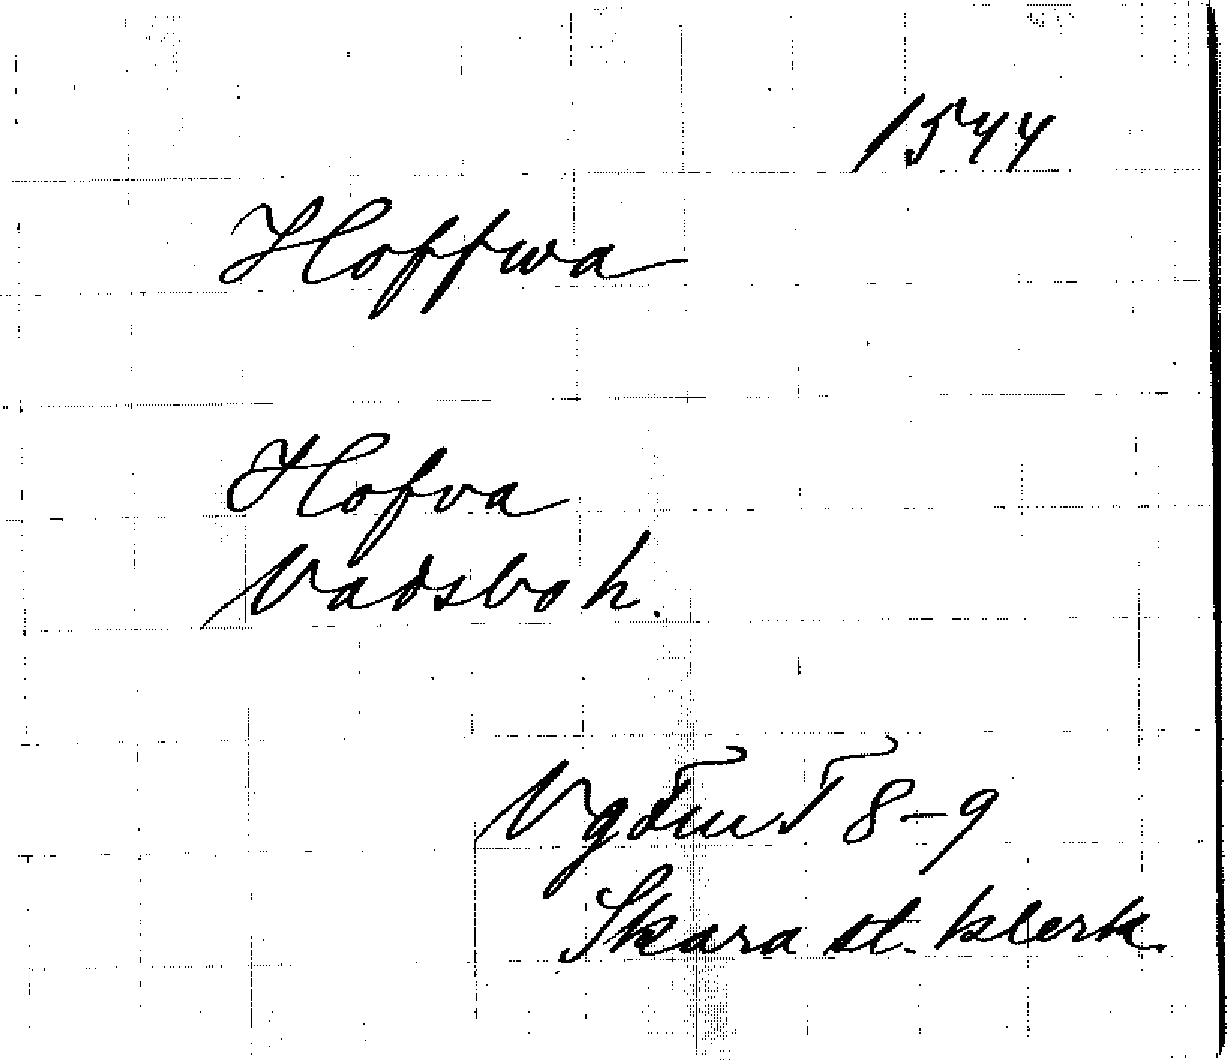 1544
Hoffwa
Hofva
Vadsbo h.
8-9
Skara st. klerk.